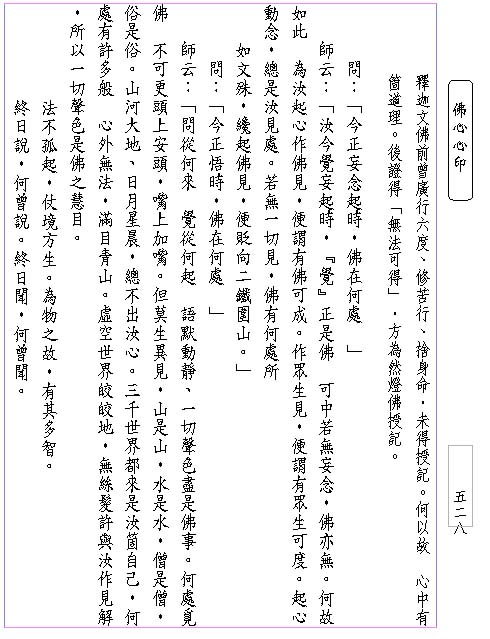 佛心心印
五二八
釋迦文佛前曾廣行六度、修苦行、捨身命，未得授記。何以故　心中有
箇道理。後證得「無法可得」，方為然燈佛授記。
問：「今正妄念起時，佛在何處　」
師云：「汝今覺妄起時，『覺』正是佛　可中若無妄念，佛亦無。何故
如此　為汝起心作佛見，便謂有佛可成。作眾生見，便謂有眾生可度。起心
動念，總是汝見處。若無一切見，佛有何處所
如文殊，纔起佛見，便貶向二鐵圍山。」
問：「今正悟時，佛在何處　」
師云：「問從何來　覺從何起　語默動靜、一切聲色盡是佛事。何處覓
佛　不可更頭上安頭，嘴上加嘴。但莫生異見，山是山，水是水，僧是僧，
俗是俗。山河大地、日月星晨，總不出汝心。三千世界都來是汝箇自己，何
處有許多般　心外無法，滿目青山。虛空世界皎皎地，無絲髮許與汝作見解
，所以一切聲色是佛之慧目。
法不孤起，仗境方生。為物之故，有其多智。
終日說，何曾說。終日聞，何曾聞。